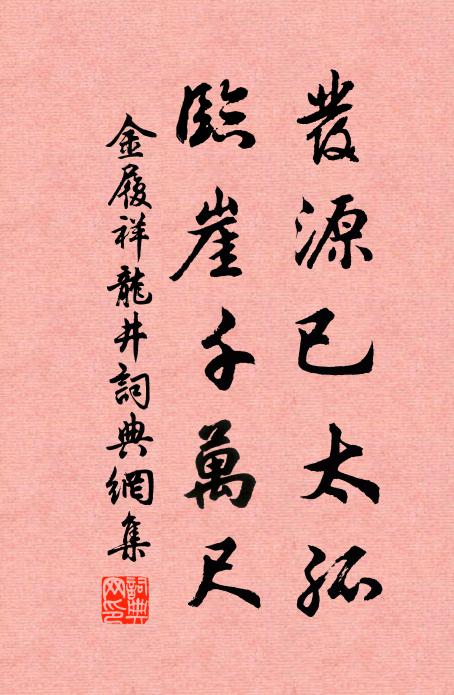 發源已太孤
臨崖千萬尺
金履祥龍井詞典網集
詞典網印